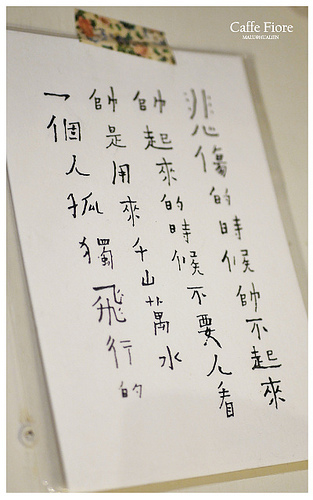 Caffe Fiore
悲傷的時候帥不起來
帥起來的時候不要人看
帥是用來千山萬水
一個人孤獨飛行的